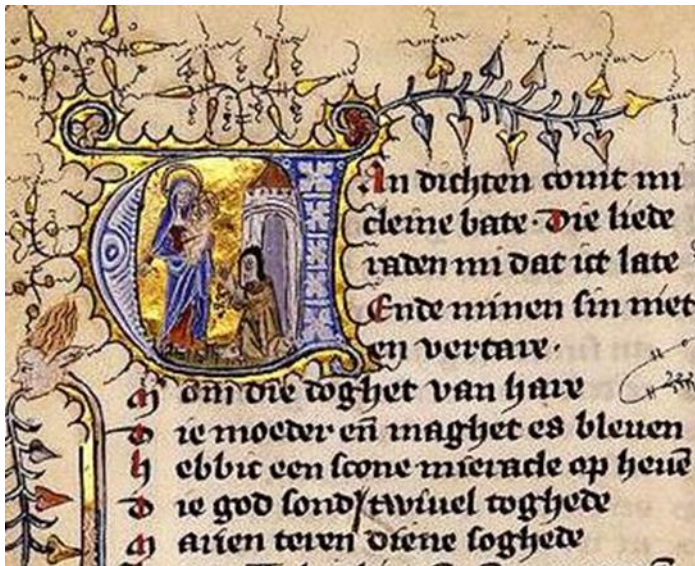 Van dichten comt mi
cleine bate· Die liede
raden mi dat ict late
Ende minen sin niet
en vertare·
M' om die doghet van hare
D ie moeder en̄ maghet es bleuen
H ebbic een scone mieracle op heuē
D ie god sond' twiuel toghede
M arien teren diene soghede